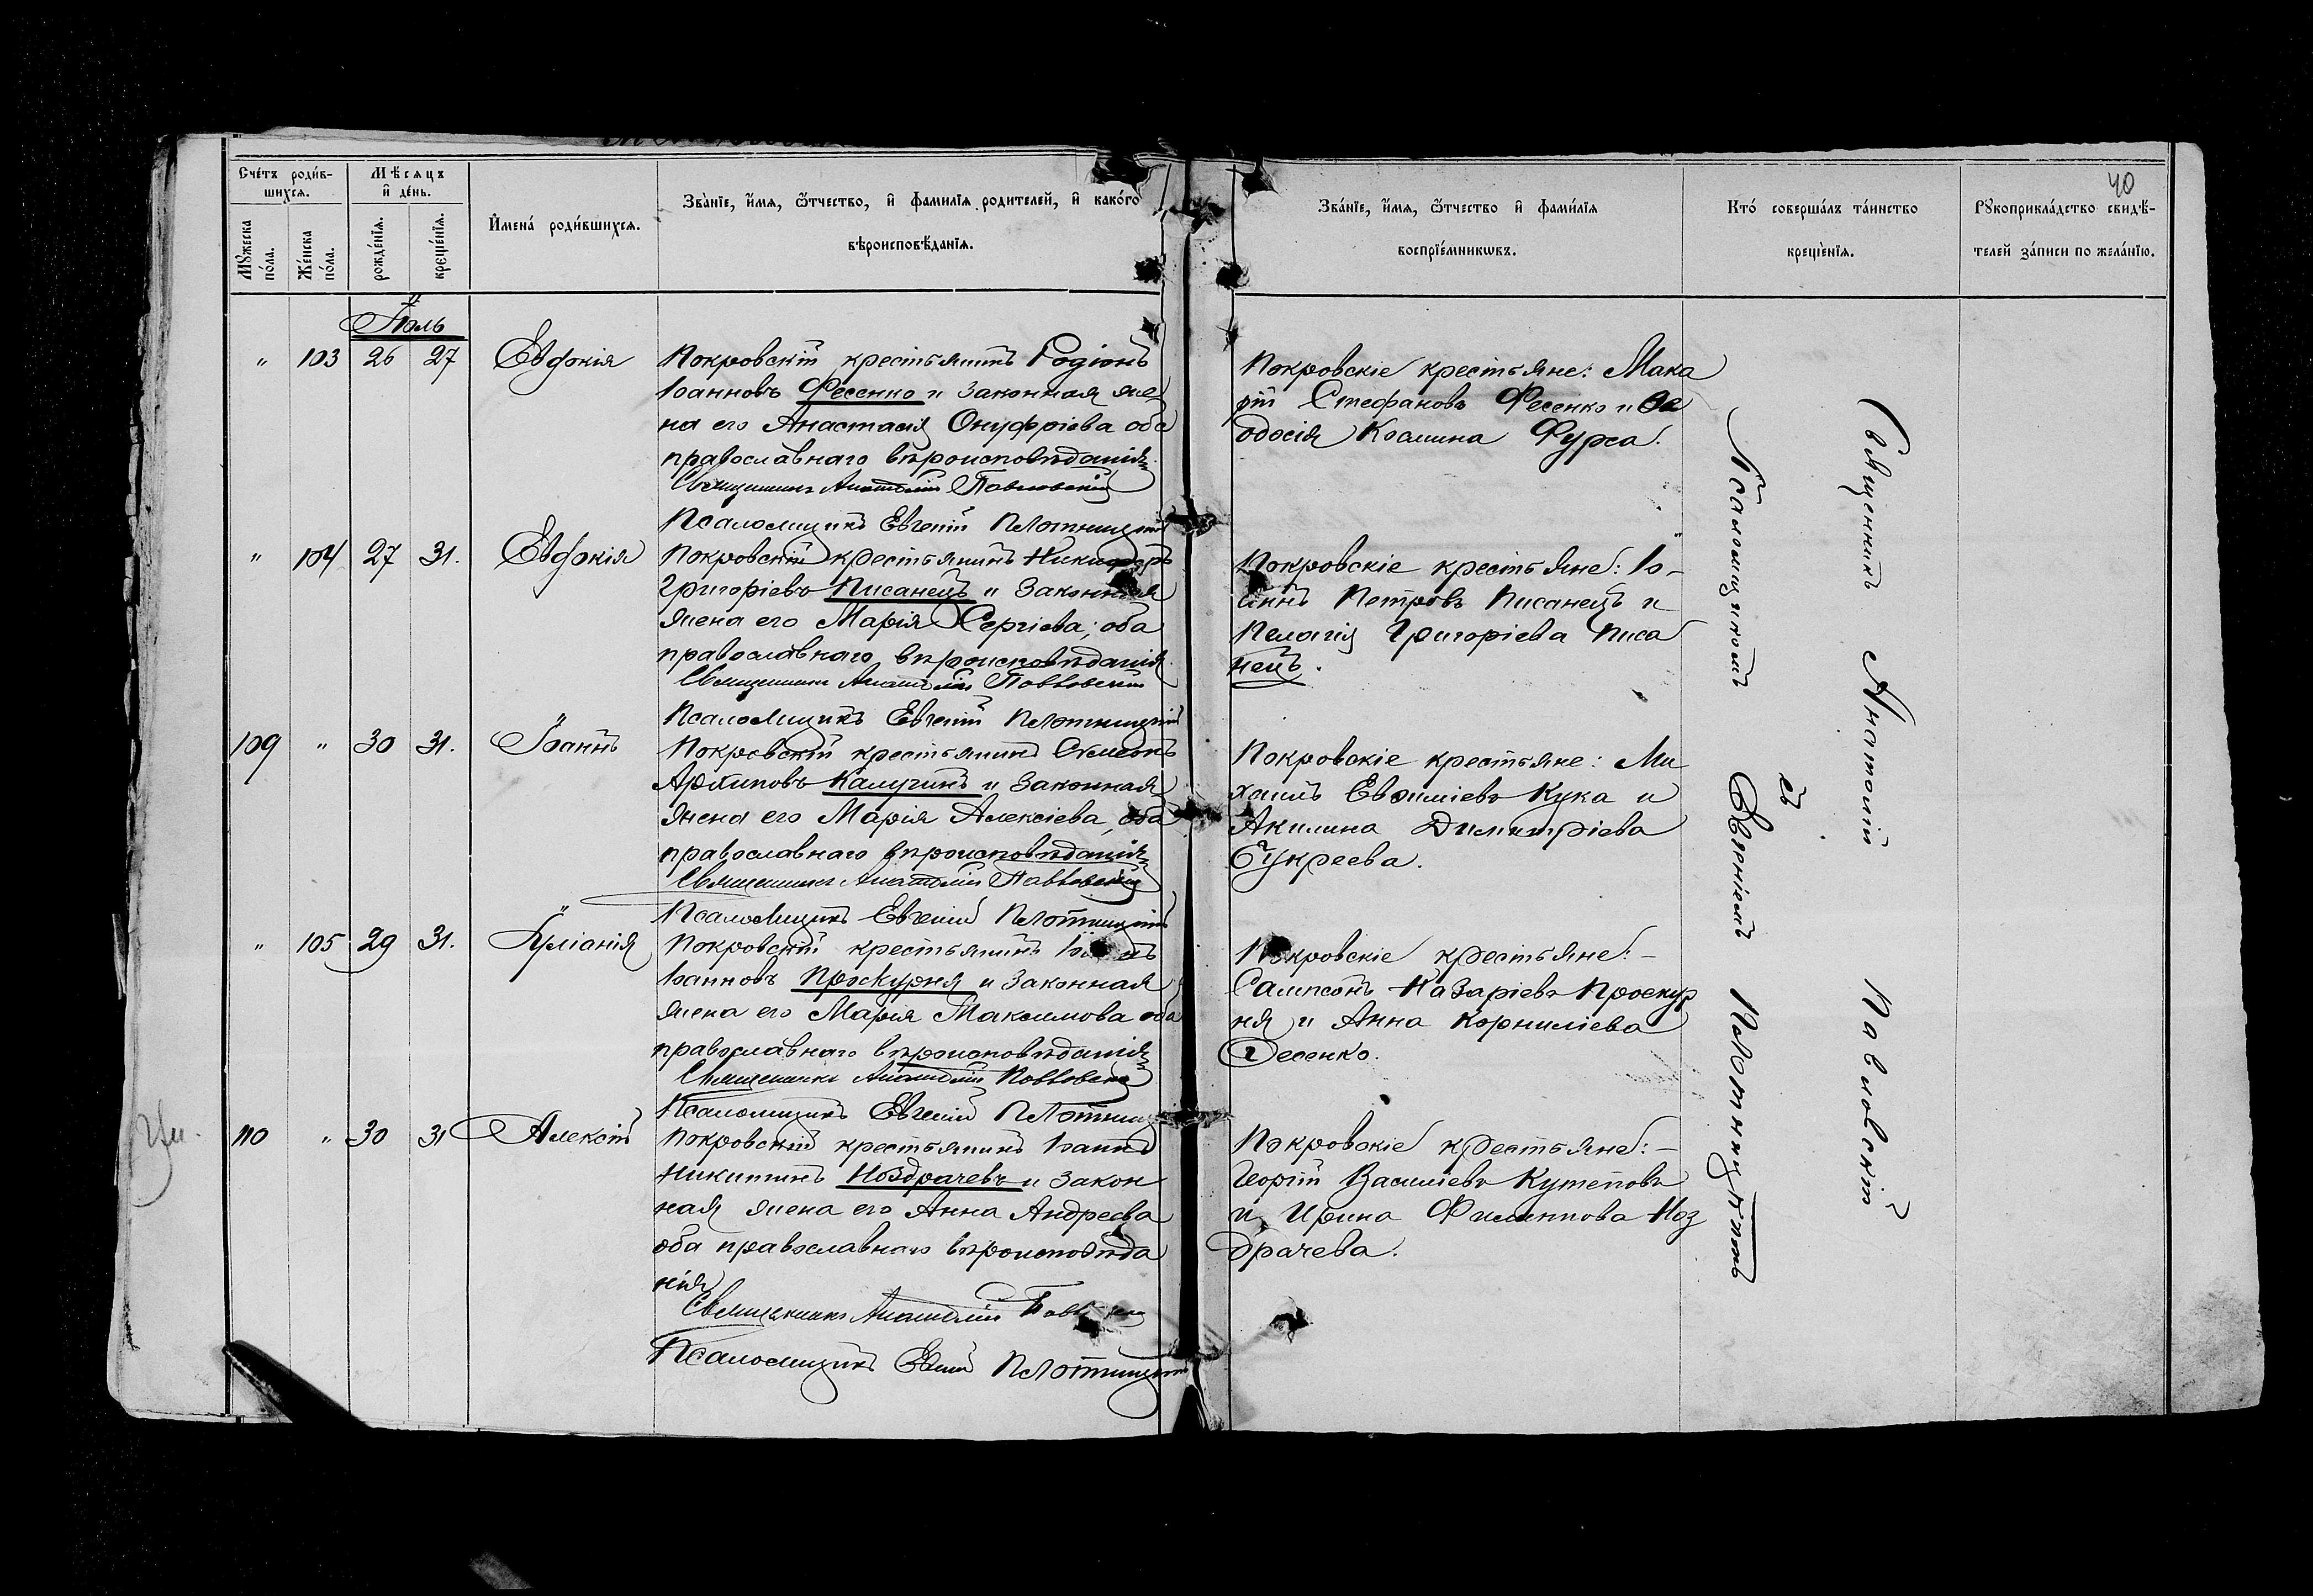 40
Счетъ родив-
шихся.
Мѣсяцъ
и день.
Мужеска
пола.
Женска
пола.
рожденія.
крещенія.
Имена родившихся.
Званіе, имя, отчество, и фамилія родителей, и какого
вѣроисповѣданія.
Званіе, имя, отчество и фамилія
воспріемниковъ.
Кто совершалъ таинство
крещенія.
Рукоприкладство свидѣ-
телей записи по желанію.
Іюль
" 103 26 27 Евдокія
Покровскій крестьянинъ Родіонъ
Іоанновъ Фесенко и законная же
на его Анастасія Онуфріева оба
православнаго вѣроисповѣданія
Священникъ Анатолій Павловскій
Псаломщикъ Евгеній Плотницкій
Покровскіе крестьяне: Мака
рій Стефановъ Фесенко и Ѳе
одосія Космина Фурса.
" 104 27 31. Евдокія
Покровскій крестьянинъ Никифоръ
Григоріевъ Писанецъ и законная
жена его Марія Сергіева; оба
православнаго вѣроисповѣданія
Священникъ Анатолій Павловскій
Псаломщикъ Евгеній Плотницкій
Покровскіе крестьяне: Іо-
аннъ Петровъ Писанецъ и
Пелагія Григоріева Писа
нецъ.
109 " 30 31. Іоаннъ
Покровскій крестьянинъ Симеонъ
Архиповъ Калугинъ и законная
жена его Марія Алексіева, оба
православнаго вѣроисповѣданія
Священникъ Анатолій Павловскій
Псаломщикъ Евгеній Плотницкій
Покровскіе крестьяне: Ми
хаилъ Евѳиміевъ Кука и
Акилина Димитріева
" 105 29 31. Іуліанія
Покровскій крестьянинъ
Іоанновъ Проскурня и законная
жена его Марія Максимова оба
православнаго вѣроисповѣданія
Священникъ Анатолій Павловскій
Псаломщикъ Евгеній Плотниц
Покровскіе крестьяне: -
Сампсонъ Назаріевъ Проскур
ня и Анна Корниліева
Фесенко.
110 " 30 31 Алексій
Покровскій крестьянинъ Іоаннъ
Никитинъ Ноздрачевъ и закон
ная жена его Анна Андреева
оба православнаго вѣроисповѣда
нія
Священникъ Анатолій
Псаломщикъ Евгеній Плотницкій
Покровскіе крестьяне: -
Георгій Василіевъ Кутеповъ
и Ирина Филиппова Ноз
драчева.
Священникъ Анатолій Павловскій
съ
Псаломщикомъ Евгеніемъ Плотницкимъ